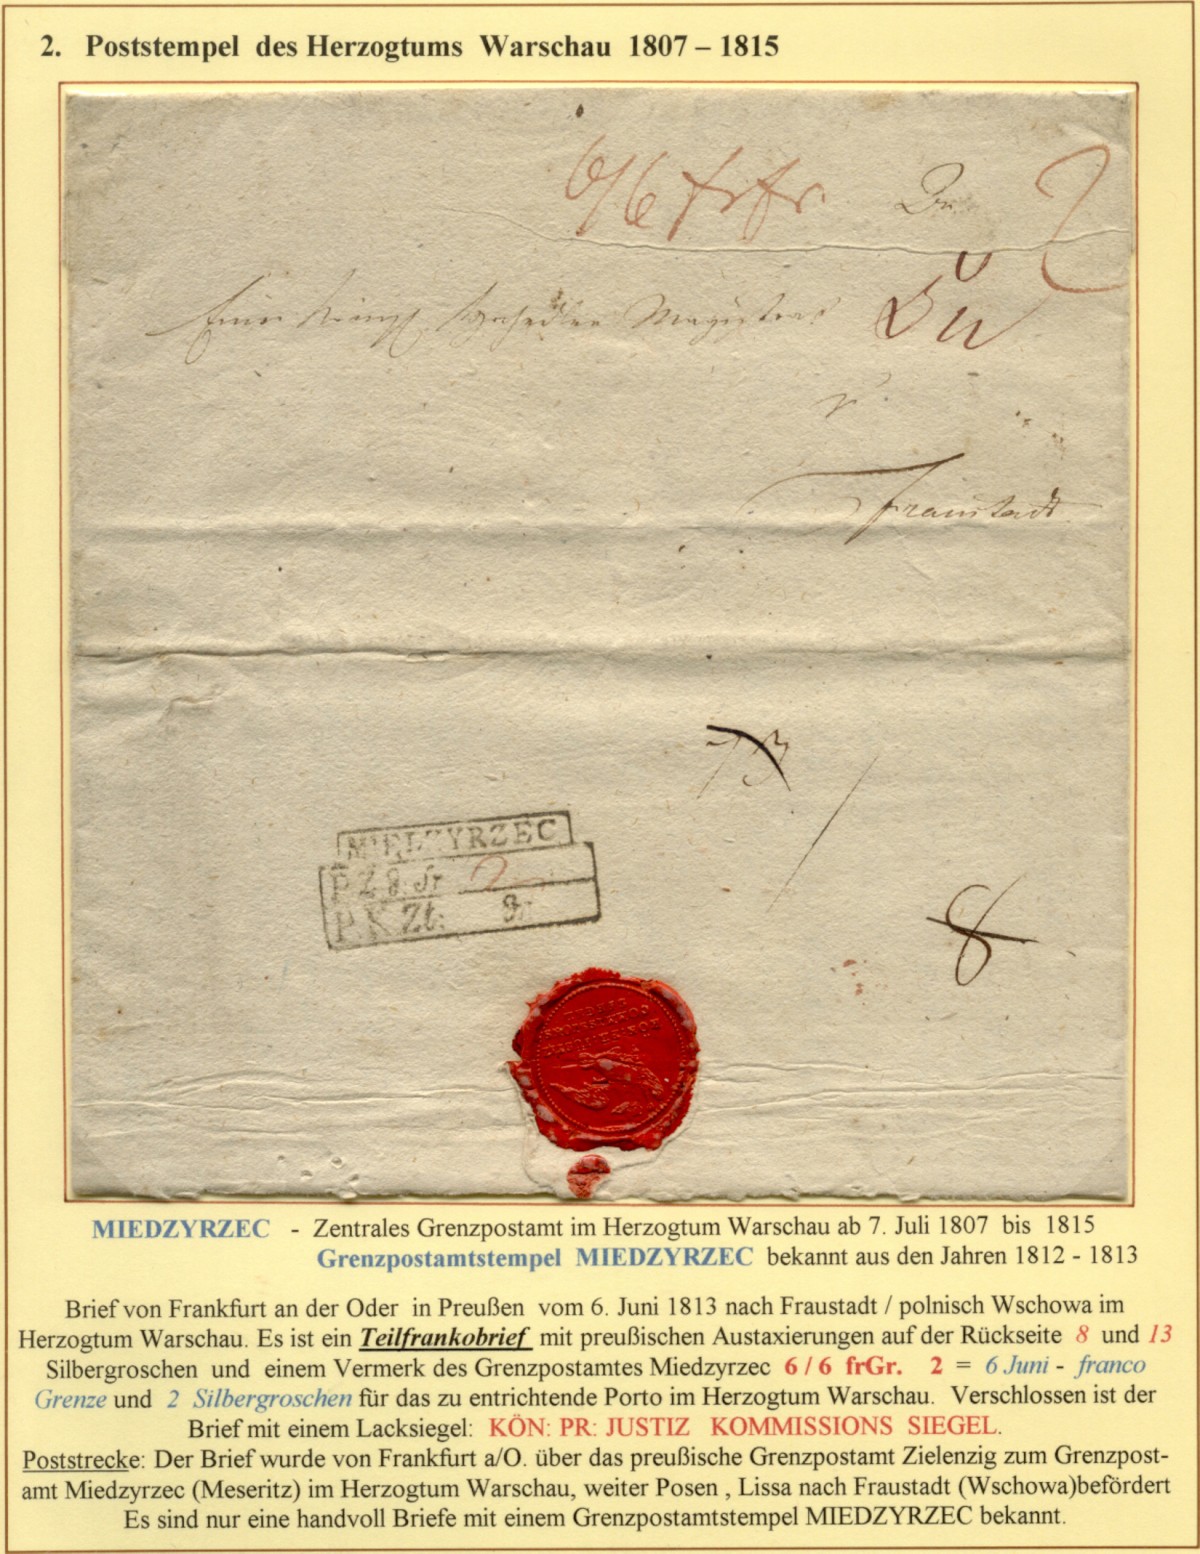 2. Poststempel des Herzogtums Warschau 1807 – 1815
6/6 frfr. 2
Magistrat
Fraustadt
MIĘDZYRZEC
P. Z g. Gr 2
P. K Zt. Gr
8
MIEDZYRZEC - Zentrales Grenzpostamt im Herzogtum Warschau ab 7. Juli 1807 bis 1815
Grenzpostamtstempel MIEDZYRZEC bekannt aus den Jahren 1812 - 1813
Brief von Frankfurt an der Oder in Preußen vom 6. Juni 1813 nach Fraustadt / polnisch Wschowa im
Herzogtum Warschau. Es ist ein Teilfrankobrief mit preußischen Austaxierungen auf der Rückseite 8 und 13
Silbergroschen und einem Vermerk des Grenzpostamtes Miedzyrzec 6 / 6 frGr. 2 = 6 Juni - franco
Grenze und 2 Silbergroschen für das zu entrichtende Porto im Herzogtum Warschau. Verschlossen ist der
Brief mit einem Lacksiegel: KÖN: PR: JUSTIZ KOMMISSIONS SIEGEL.
Poststrecke: Der Brief wurde von Frankfurt a/O. über das preußische Grenzpostamt Zielenzig zum Grenzpost-
amt Miedzyrzec (Meseritz) im Herzogtum Warschau, weiter Posen , Lissa nach Fraustadt (Wschowa)befördert
Es sind nur eine handvoll Briefe mit einem Grenzpostamtstempel MIEDZYRZEC bekannt.